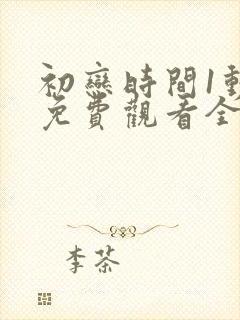 初戀時間1動
免費觀看全
李茶